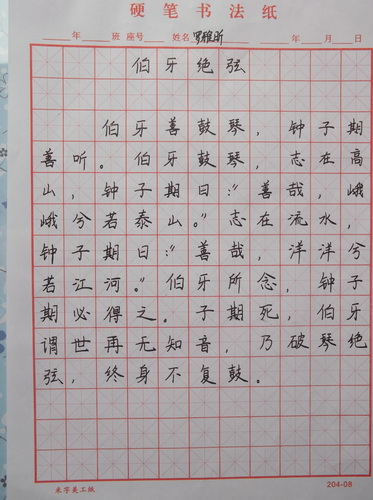 硬笔书法纸
年 班 座号 姓名 罗雅昕 年 月 日
伯牙绝弦
伯牙善鼓琴，钟子期
善听。伯牙鼓琴，志在高
山，钟子期曰：“善哉，峨
峨兮若泰山。”志在流水，
钟子期曰：“善哉，洋洋兮
若江河。”伯牙所念，钟子
期必得之。子期死，伯牙
谓世再无知音，乃破琴绝
弦，终身不复鼓。
米字美工纸 204-08